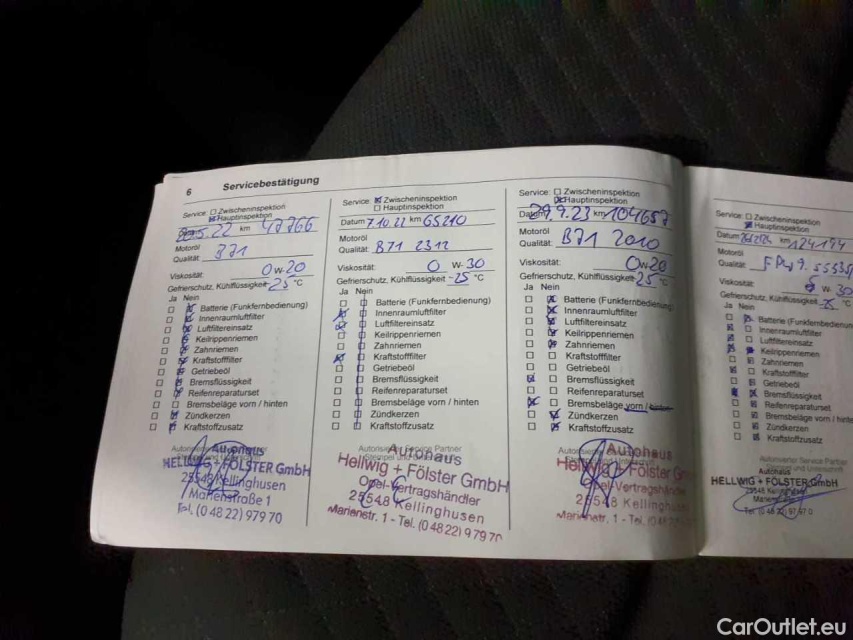 6
Servicebestätigung
Service: Zwischeninspektion
Hauptinspektion
Datum 5.22 km 47766
Motoröl
Qualität: B71
Viskosität: 0 W-20
Gefrierschutz, Kühlflüssigkeit -25 °C
Ja Nein
Batterie (Funkfernbedienung)
Innenraumluftfilter
Luftfiltereinsatz
Keilrippenriemen
Zahnriemen
Kraftstofffilter
Getriebeöl
Bremsflüssigkeit
Reifenreparaturset
Bremsbeläge vorn / hinten
Zündkerzen
Kraftstoffzusatz
Autohaus
HELLWIG + FÖLSTER GmbH
25548 Kellinghusen
Marienstraße 1
Tel. (0 48 22) 979 70
Service: Zwischeninspektion
Hauptinspektion
Datum 7.10.22 km 65210
Motoröl
Qualität: B71 2312
Viskosität: 0 W-30
Gefrierschutz, Kühlflüssigkeit -25 °C
Ja Nein
Batterie (Funkfernbedienung)
Innenraumluftfilter
Luftfiltereinsatz
Keilrippenriemen
Zahnriemen
Kraftstofffilter
Getriebeöl
Bremsflüssigkeit
Reifenreparaturset
Bremsbeläge vorn / hinten
Zündkerzen
Kraftstoffzusatz
Autorisierter Service Partner
Autohaus
Hellwig + Fölster GmbH
Opel-Vertragshändler
25548 Kellinghusen
Marienstr. 1 - Tel. (0 48 22) 979 70
Service: Zwischeninspektion
Hauptinspektion
Datum 29.9.23 km 104657
Motoröl
Qualität: B71 2010
Viskosität: 0W20
Gefrierschutz, Kühlflüssigkeit -25 °C
Ja Nein
Batterie (Funkfernbedienung
Innenraumluftfilter
Luftfiltereinsatz
Keilrippenriemen
Zahnriemen
Kraftstofffilter
Getriebeöl
Bremsflüssigkeit
Reifenreparaturset
Bremsbeläge vorn / hinten
Zündkerzen
Kraftstoffzusatz
Autohaus
Hellwig + Fölster G
Opel-Vertragshänd
25548 Kellinghus
Marienstr. 1 - Tel. (0 48
Service: Zwischeninspektion
Hauptinspektion
Datum km 124194
Motoröl
Qualität:
Viskosität: W- 30
Gefrierschutz, Kühlflüssigkeit -25 °C
Ja Nein
Batterie (Funkfernbedienun
Innenraumluftfilter
Luftfiltereinsatz
Keilrippenriemen
Zahnriemen
Kraftstofffilter
Getriebeöl
Bremsflüssigkeit
Reifenreparaturset
Bremsbeläge vorn / hinte
Zündkerzen
Kraftstoffzusatz
Autorisierter Service Partner
Autohaus
HELLWIG + FÖLSTER GmbH
25548 Kellinghusen
Tel. (0 48 22) 97 97 0
CarOutlet.eu